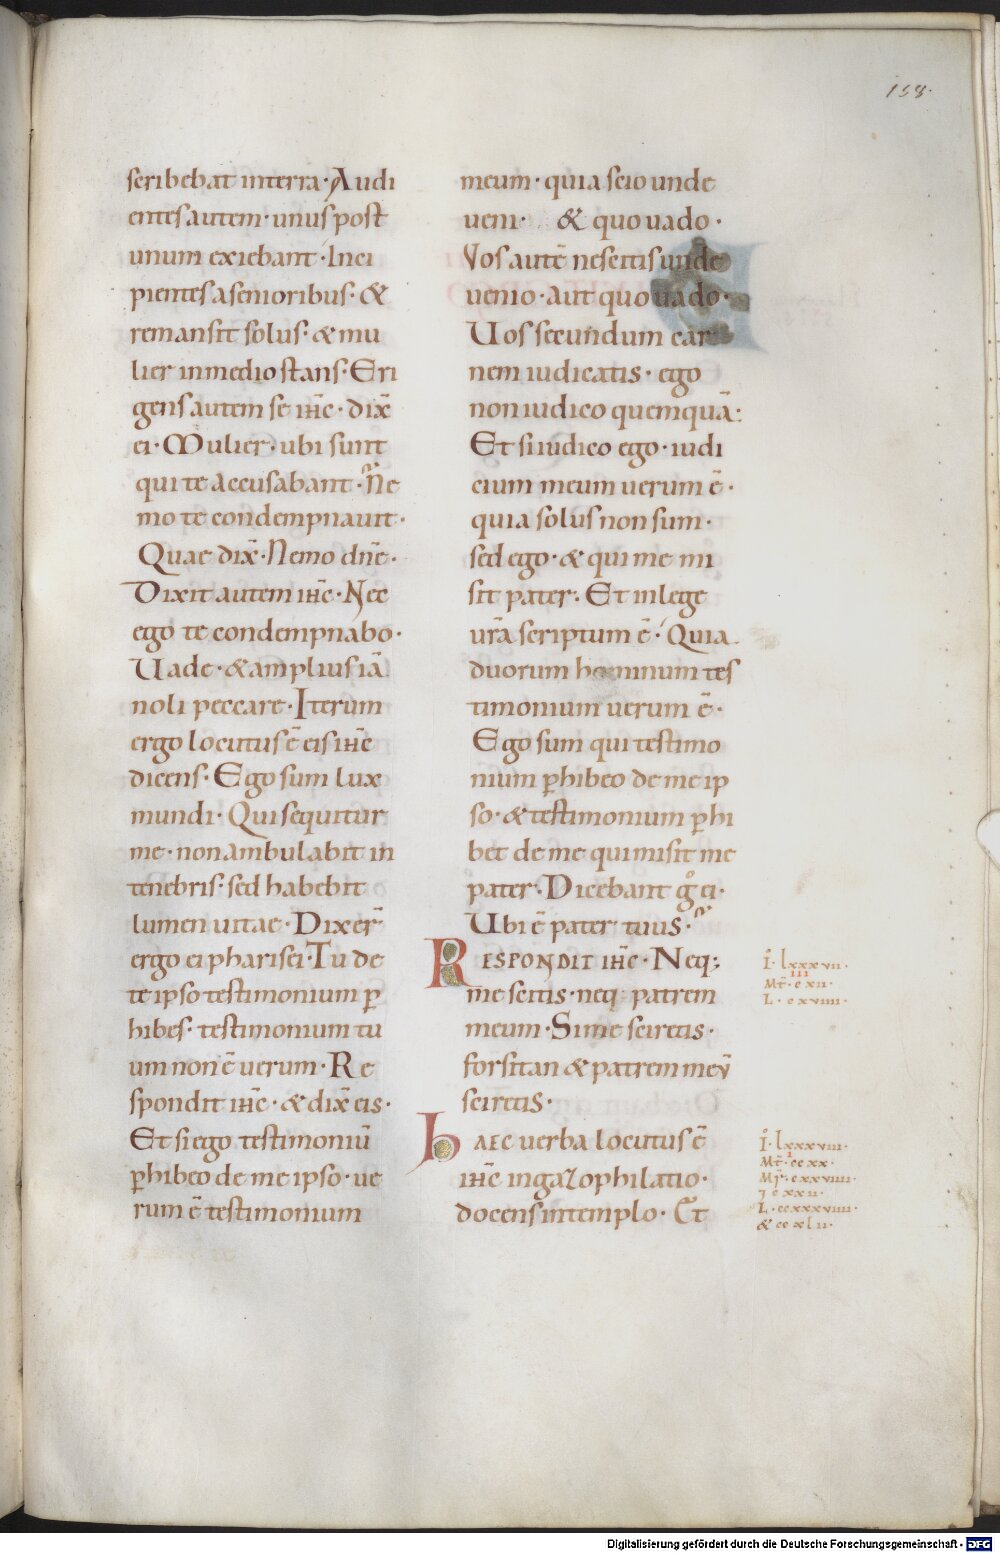 158.
scribebat in terra · Audi
entes autem · unus post
unum exiebant · Inci
pientes a senioribus · &
remansit solus · & mu
lier in medio stans · Eri
gens autem se ihc̄ · dix̄
ei · Mulier · ubi sunt
qui te accusabant · Ne
mo te condempnauit ·
Quae dix̄ · Nemo dnē ·
Dixit autem ihc̄ · Nec
ego te condempnabo ·
Uade · & amplius iā
noli peccare · Iterum
ergo locutus ē eis ihc̄
dicens · Ego sum lux
mundi · Qui sequitur
me · non ambulabit in
tenebris · sed habebit
lumen uitae · Dixer̄
ergo ei pharisei · Tu de
te ipso testimonium p̄
hibes · testimonium tu
um non ē uerum · Re
spondit ihc̄ · & dix̄ eis ·
Et si ego testimoniū
p̄hibeo de me ipso · ue
rum ē testimonium
meum · quia scio unde
ueni · & quo uado ·
Vos autē nescitis unde
uenio · aut quo uado ·
Uos secundum car
nem iudicatis · ego
non iudico quemquā :
Et si iudico ego · iudi
cium meum uerum ē ·
quia solus non sum ·
sed ego · & qui me mi
sit pater · Et in lege
ur̄a scriptum ē · Quia
duorum hominum tes
timonium uerum ē ·
Ego sum qui testimo
nium p̄hibeo de me ip
so · & testimonium p̄hi
bet de me qui misit me
pater · Dicebant gͦ ei ·
Ubi ē pater tuus ·
RESPONDIT ihc̄ · Neq;
me scitis · neq; patrem
meum · Si me sciretis ·
forsitan & patrem meū
sciretis ·
hAEC uerba locutus ē
ihc̄ in gazophilatio ·
docens in templo · Et
I · lxxxvii ·
III
Mt̄ · cxii ·
L · cxviiii ·
I · lxxxviii ·
I
Mt̄ · ccxx ·
Mr̄ · cxxviiii ·
7 cxxii ·
L · ccxxxviiii ·
& ccxlii ·
Digitalisierung gefördert durch die Deutsche Forschungsgemeinschaft - DFG